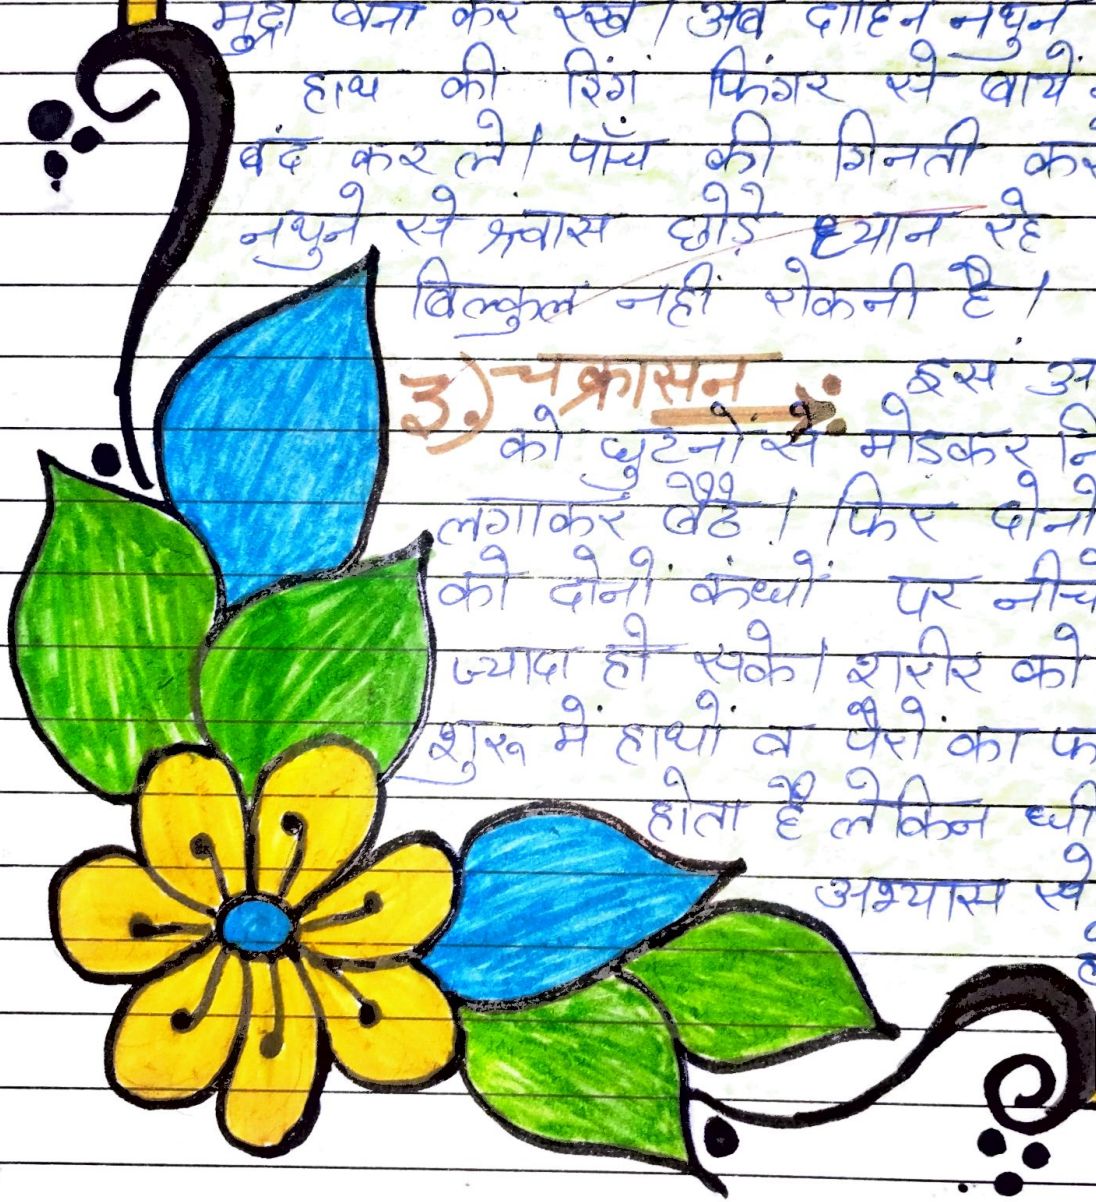 मुद्रा बना कर रखे। अब दाहिने नथुने
हाथ की रिंग फिंगर से बायें
बंद कर ले। पाँच की गिनती करे
नथुने से श्वास छोड़े ध्यान रहे
बिल्कुल नहीं रोकनी है।
3.) चक्रासन इस
को घुटनों से मोडकर
लगाकर बैठे। फिर दोनों
को दोनों कंधों पर नीचे
ज्यादा हो सके। शरीर को
शुरू में हाथों व पैरों का
होता है लेकिन
अभ्यास से